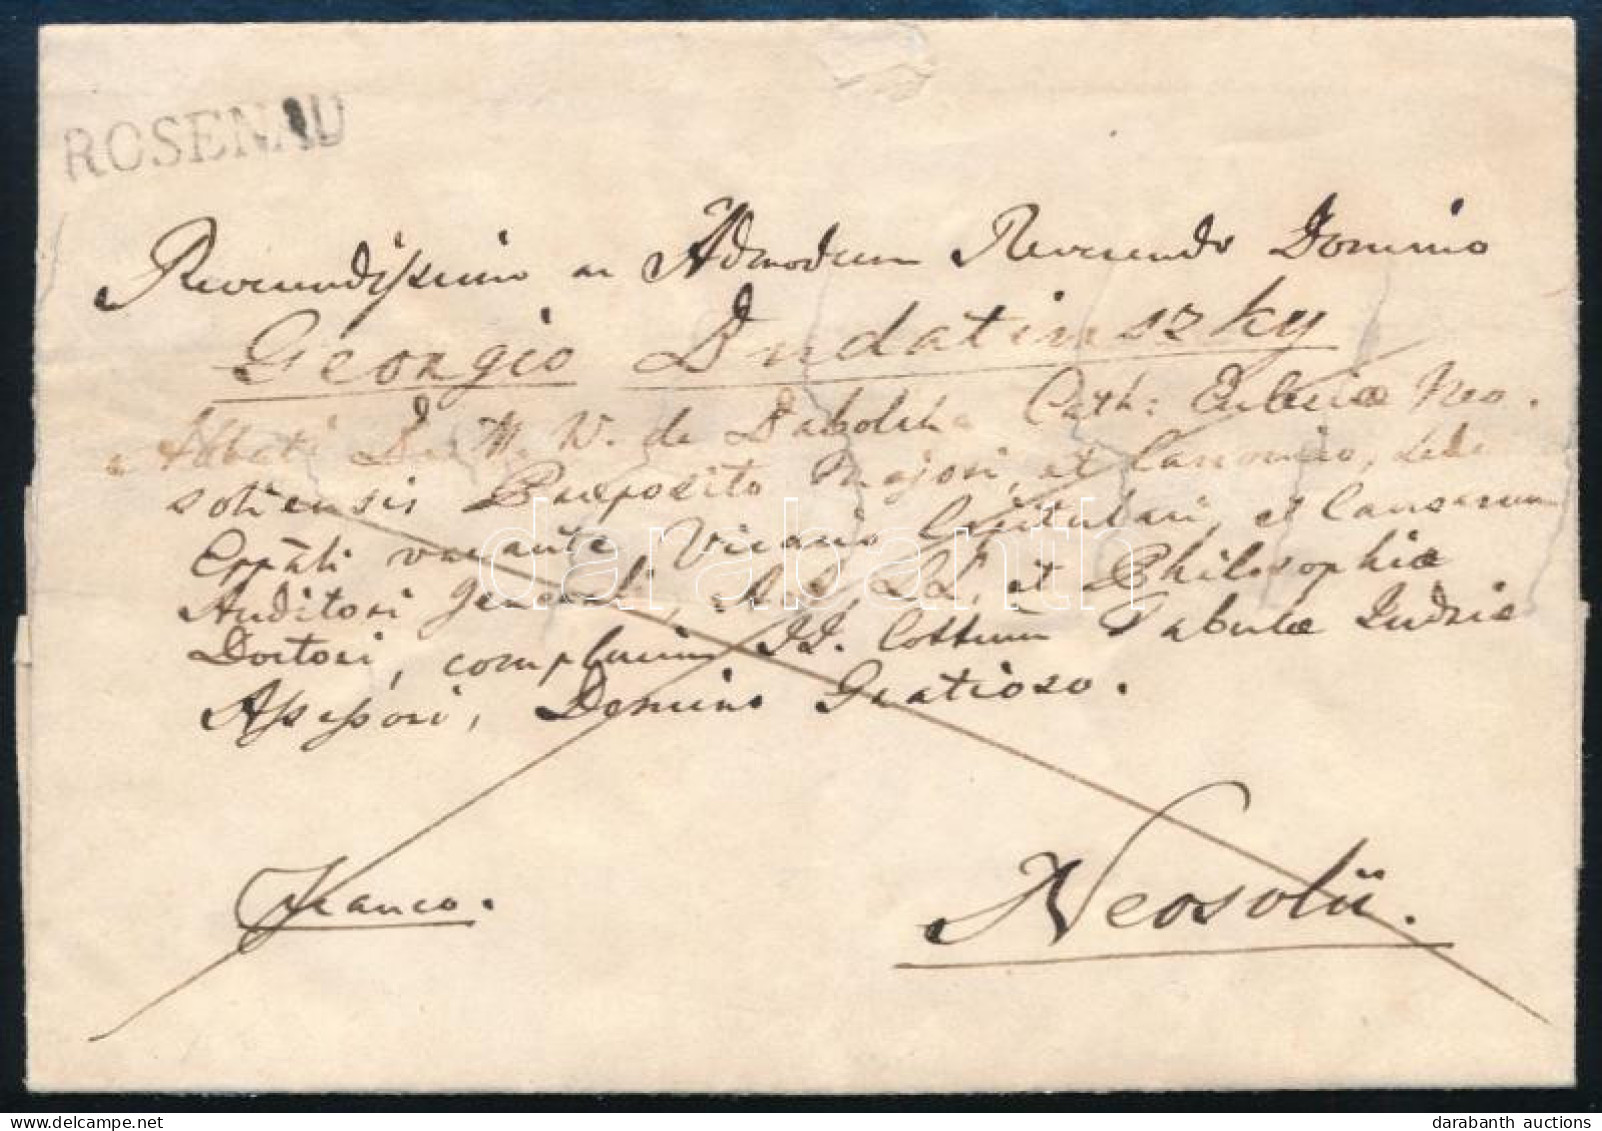 ROSENAU
Reverendissimo ac Admodum Reverendo Domino
Georgio Dudatinszky
Abbati B. M. V. de Dabolcha Cath: Ecclesiae Neo-
soliensis Praeposito Majori, et Canonico, Sede
Eppāli vacante Vicario Capitulari, et Causarum
Auditori Generali, AA. LL. et Philosophiae
Doctori, complurium II. Cottuum Tabulae Judriae
Assessori, Domino Gratioso.
Franco.
Neosolii.
darabanth
darabanth auctions